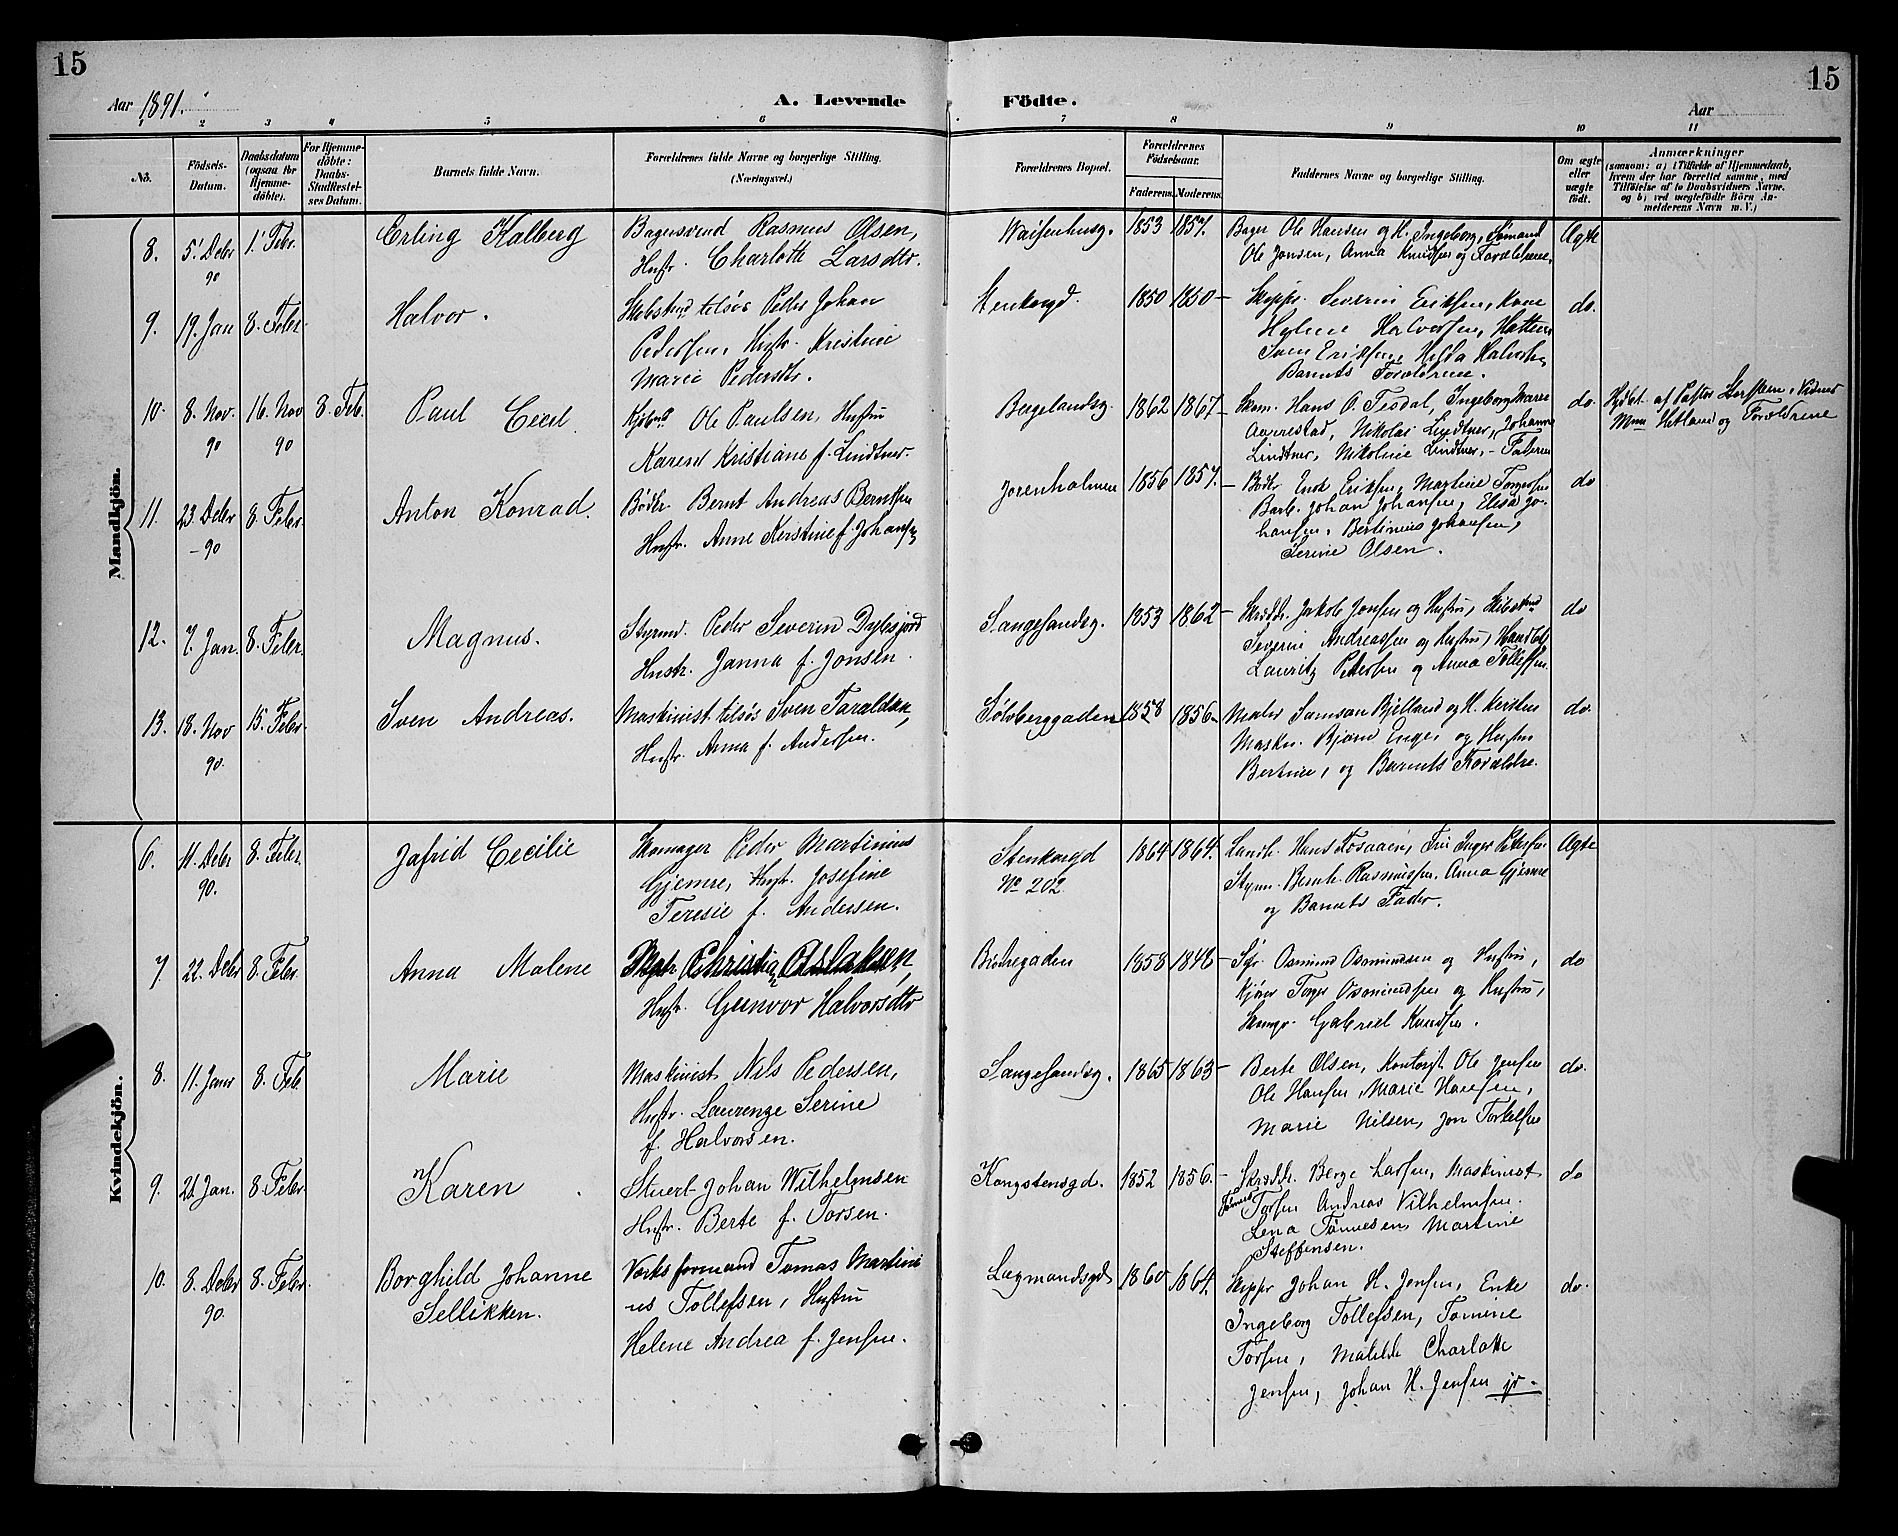 15
15
Aar 1891.
A. Levende Födte.
Aar
1 2 3 4 5 6 7 8 9 10 11
No.
Födsels-
Datum.
Daabsdatum
(ogsaa for
Hjemme-
döbte).
For Hjemme-
döbte:
Daabs-
Stadfæstel-
ses Datum.
Barnets fulde Navn.
Forældrenes fulde Navne og borgerlige Stilling.
(Næringsvei.)
Forældrenes Bopæl.
Forældrenes
Födselsaar.
Faderens. Moderens.
Faddernes Navne og borgerlige Stilling.
Om ægte
eller
uægte
födt.
Anmærkninger
(saasom: a) i Tilfælde af Hjemmedaab,
hvem der har forrettet samme, med
Tilföielse af to Daabsvidners Navne.
og b) ved uægtefödte Börn An-
melderens Navn m. V.)
Mandkjön.
8. 5' Debr 90 1' Febr. Erling Kalberg
Bagersvend Rasmus Olsen,
Hustr. Charlotte Larsdtr.
Waisenhusg. 1853 1857.
Bager Ole Hansen og H. Ingeborg, Sjømand
Ole Jonsen, Anna Knudsen og Forældrene.
Ægte
9. 19. Jan 8. Febr. Halvor.
Peder Johan
Pedersen, Hustr. Kristine
Marie Pedersdtr.
Stenkargd. 1850 1850
Skippr. Severin Eriksen, Kone
Halvorsen,
Sven Eriksen, Hilda
Barnets Forældrene.
do.
10. 8. Nov. 90 16. Nov 90 8 Feb. Paul Cecil
Kjøbm Ole Paulsen, Hustru
Karen Kristiane f. Lindtner
Bergelandsg. 1862 1867
Skom. Hans O. Tesdal, Ingeborg Marie
Averestad, Nikolai Lindtner, Johanne
Lindtner, Nikoline Lindtner, - Faderen
do.
Hjdbt. af Pastor Vidner
Hetland og Forældrene
11. 23. Debr - 90 8. Febr. Anton Konrad.
Bødkr. Bernt Andreas Berntsen
Hustr. Anne Kerstine f. Johansen
Jorenholmen 1856 1857.
Bødkr. Enok Eriksen, Martine Torgersen
Johan Johansen, Elisa Jo-
hansen, Bertinius Johansen,
Serine Olsen.
do
12. 7. Jan. 8. Febr. Magnus.
Styrmd. Peder Severin
Hustr. Janna f. Jonsen
Langesandsg. 1853 1862
Skrædr. Jakob Jonsen og Hustru,
Severin Andreassen og Hustru,
Lauritz Pedersen og Anna Tollefsen
do
13. 18. Nov 90. 15. Febr. Sven Andreas.
Maskinist tilsøs Sven Taraldsen,
Hustr. Anna f. Andersen.
Sølvberggaden 1858 1856
Maler Samson Bjelland og H. Kersten
Maskn. Bjørn Enge og Hustru
Bertine, og Barnets Forældre.
do.
Kvindekjön.
6. 11. Debr 90. 8. Febr. Jafrid Cecilie
Skomager Peder Martinius
Gjemre, Hustr. Josefine
Teresie f. Andersen.
Stenkargd
No 202 1864 1864.
Landh. Hans Fosaaen, Frk Inger Petersen
Styrm. Bernh. Rasmussen. Anna Gjemre
og Barnets Fader.
Ægte
7. 22. Debr 8. Febr. Anna Malene
Christian Aslaksen,
Hustr. Gunvor Halvorsdtr
Birkegaden 1858 1848
Osmund Osmundsen og Hustru,
Torger Osmundsen og Hustru,
Gabriel Knudsen.
do
8. 11. Janr 8. Feb. Marie
Maskinist Nils Pedersen,
Hustr. Laurenze Serine
f. Halvorsen.
Langesandsg. 1865 1863
Berte Olsen, Kontorgt Ole Jensen
Ole Hansen, Marie Hansen,
Marie Nilsen, Jon Torkelsen
do.
9. 21. Jan. 8. Febr. Karen
Stuert Johan Wilhelmsen
Hustr. Berte f. Torsen.
Kongstensgd. 1852 1856.
Skrædr. Berge Larsen, Maskinist
Torsen Andreas Vilhelmsen.
Lena Tønnesen Martine
Steffensen.
do
10. 8. Debr 90. 8. Febr. Borghild Johanne
Sellikken.
Værksformand Tomas Martini
us Tollefsen, Hustru
Helene Andrea f. Jensen.
Lagmandsgd 1860 1864.
Skippr Johan H. Jensen, Enke
Ingeborg Tollefsen, Tomine
Torsen, Matilde Charlotte
Jensen, Johan H. Jensen jr.
do.